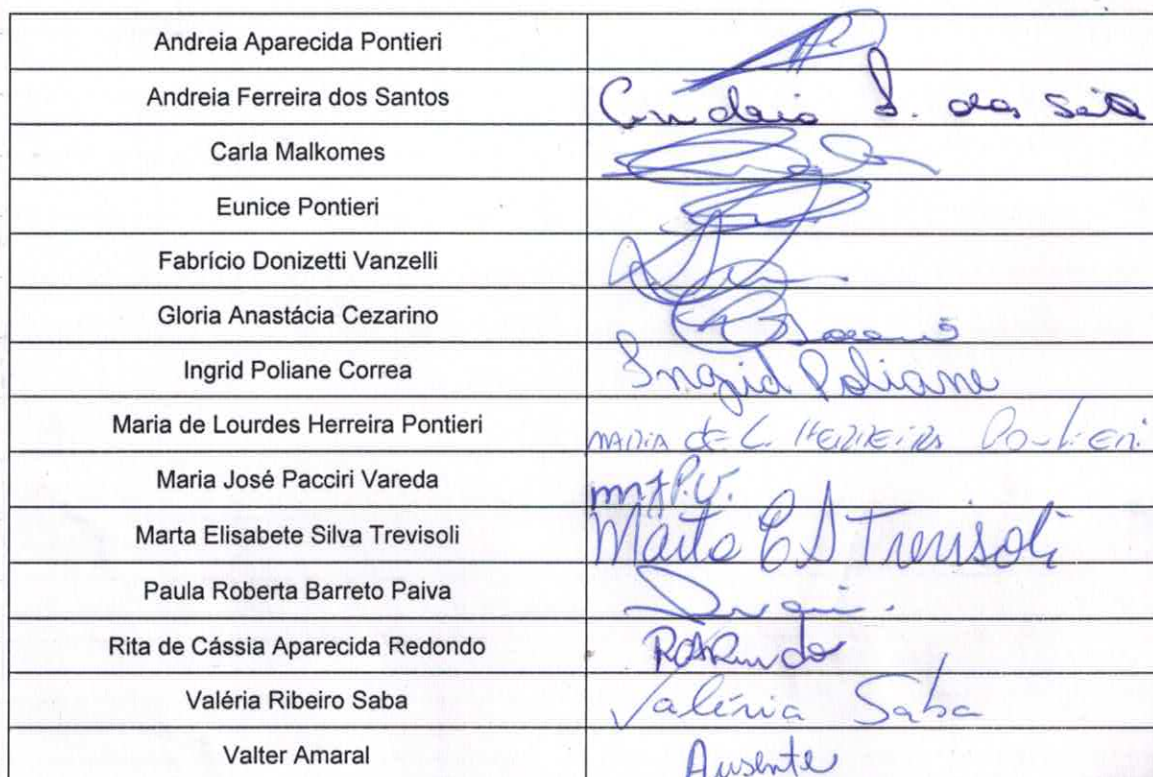 Andreia Aparecida Pontieri
Andreia Ferreira dos Santos
Carla Malkomes
Eunice Pontieri
Fabrício Donizetti Vanzelli
Gloria Anastácia Cezarino
Ingrid Poliane Correa Ingrid Poliane
Maria de Lourdes Herreira Pontieri MARIA de L. HERREIRA Pontieri
Maria José Pacciri Vareda m.J.P.V.
Marta Elisabete Silva Trevisoli Marta E S Trevisoli
Paula Roberta Barreto Paiva
Rita de Cássia Aparecida Redondo
Valéria Ribeiro Saba Valéria Saba
Valter Amaral Ausente